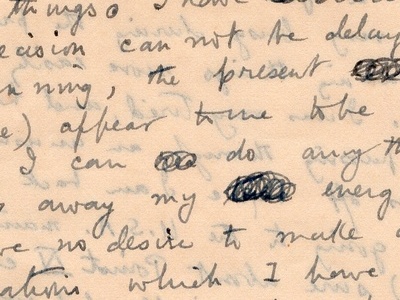 things. I have
ecision can not be delay
nning, the present
e) appear to me to be
I can do any th
s away my energ
ve no desire to make a
ations which I have